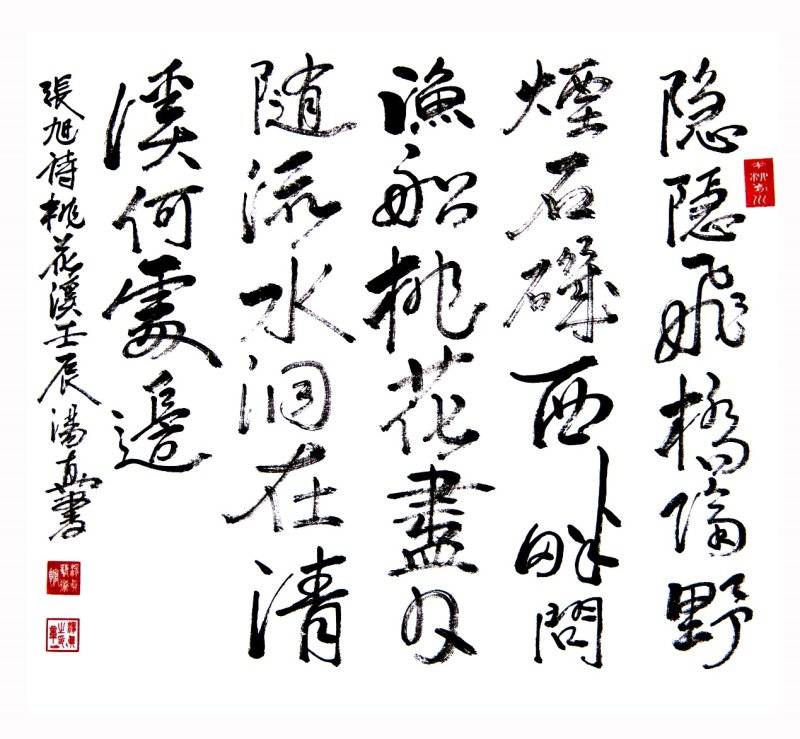 隐隐飛橋隔野
煙石磯西畔問
漁船桃花盡日
随流水洞在清
溪何處邊
張旭诗桃花溪壬辰湯真書